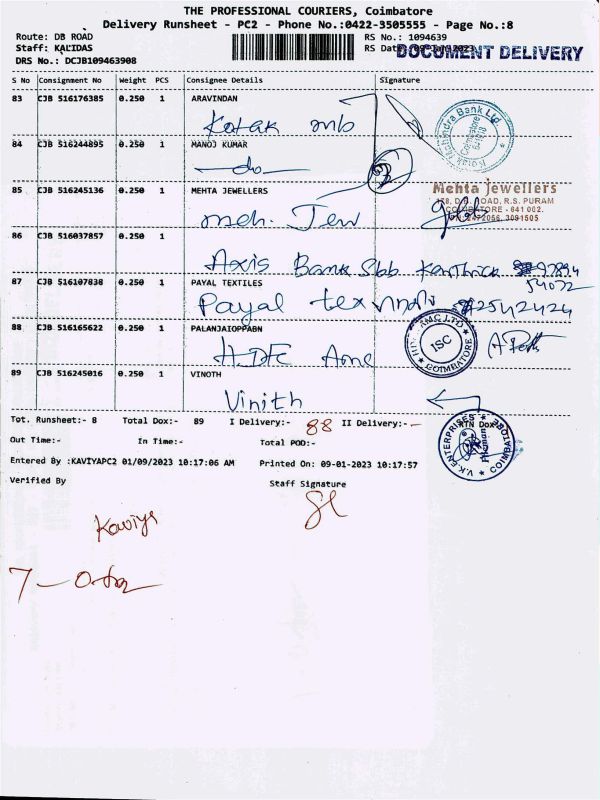 THE PROFESSIONAL COURIERS, Coimbatore
Delivery Runsheet - PC2 - Phone No.:0422-3505555 - Page No.:8
Route: DB ROAD
RS No.: 1094639
Staff: KALIDAS
RS Date
DOCUMENT DELIVERY
DRS No.: DCJB109463908
S No Consignment No Weight PCS Consignee Details Signature
83 CJB 516176385 0.250 1 ARAVINDAN
Kotak mb
84 CJB 516244895 0.250 1 MANOJ KUMAR
-do-
85 CJB 516245136 0.250 1 MEHTA JEWELLERS
meh. Jew
Mehta Jewellers
178, D.B. ROAD, R.S. PURAM
COIMBATORE - 641 002.
PH: 2472056, 3091505
86 CJB 516037857 0.250 1
Axis Bank Sbb Karthick 97894
54072
87 CJB 516107838 0.250 1 PAYAL TEXTILES
Payal tex 2542424
88 CJB 516165622 0.250 1 PALANJAIOPPABN
HDFC Amc
AMC LTD
ISC
COIMBATORE
89 CJB 516245016 0.250 1 VINOTH
Vinith
Tot. Runsheet:- 8 Total Dox:- 89 I Delivery:- 88 II Delivery:- -
RTN Dox
V.K ENTERPRISES
Out Time:- In Time:- Total POD:-
Entered By :KAVIYAPC2 01/09/2023 10:17:06 AM Printed On: 09-01-2023 10:17:57
Verified By
Staff Signature
Kaviya